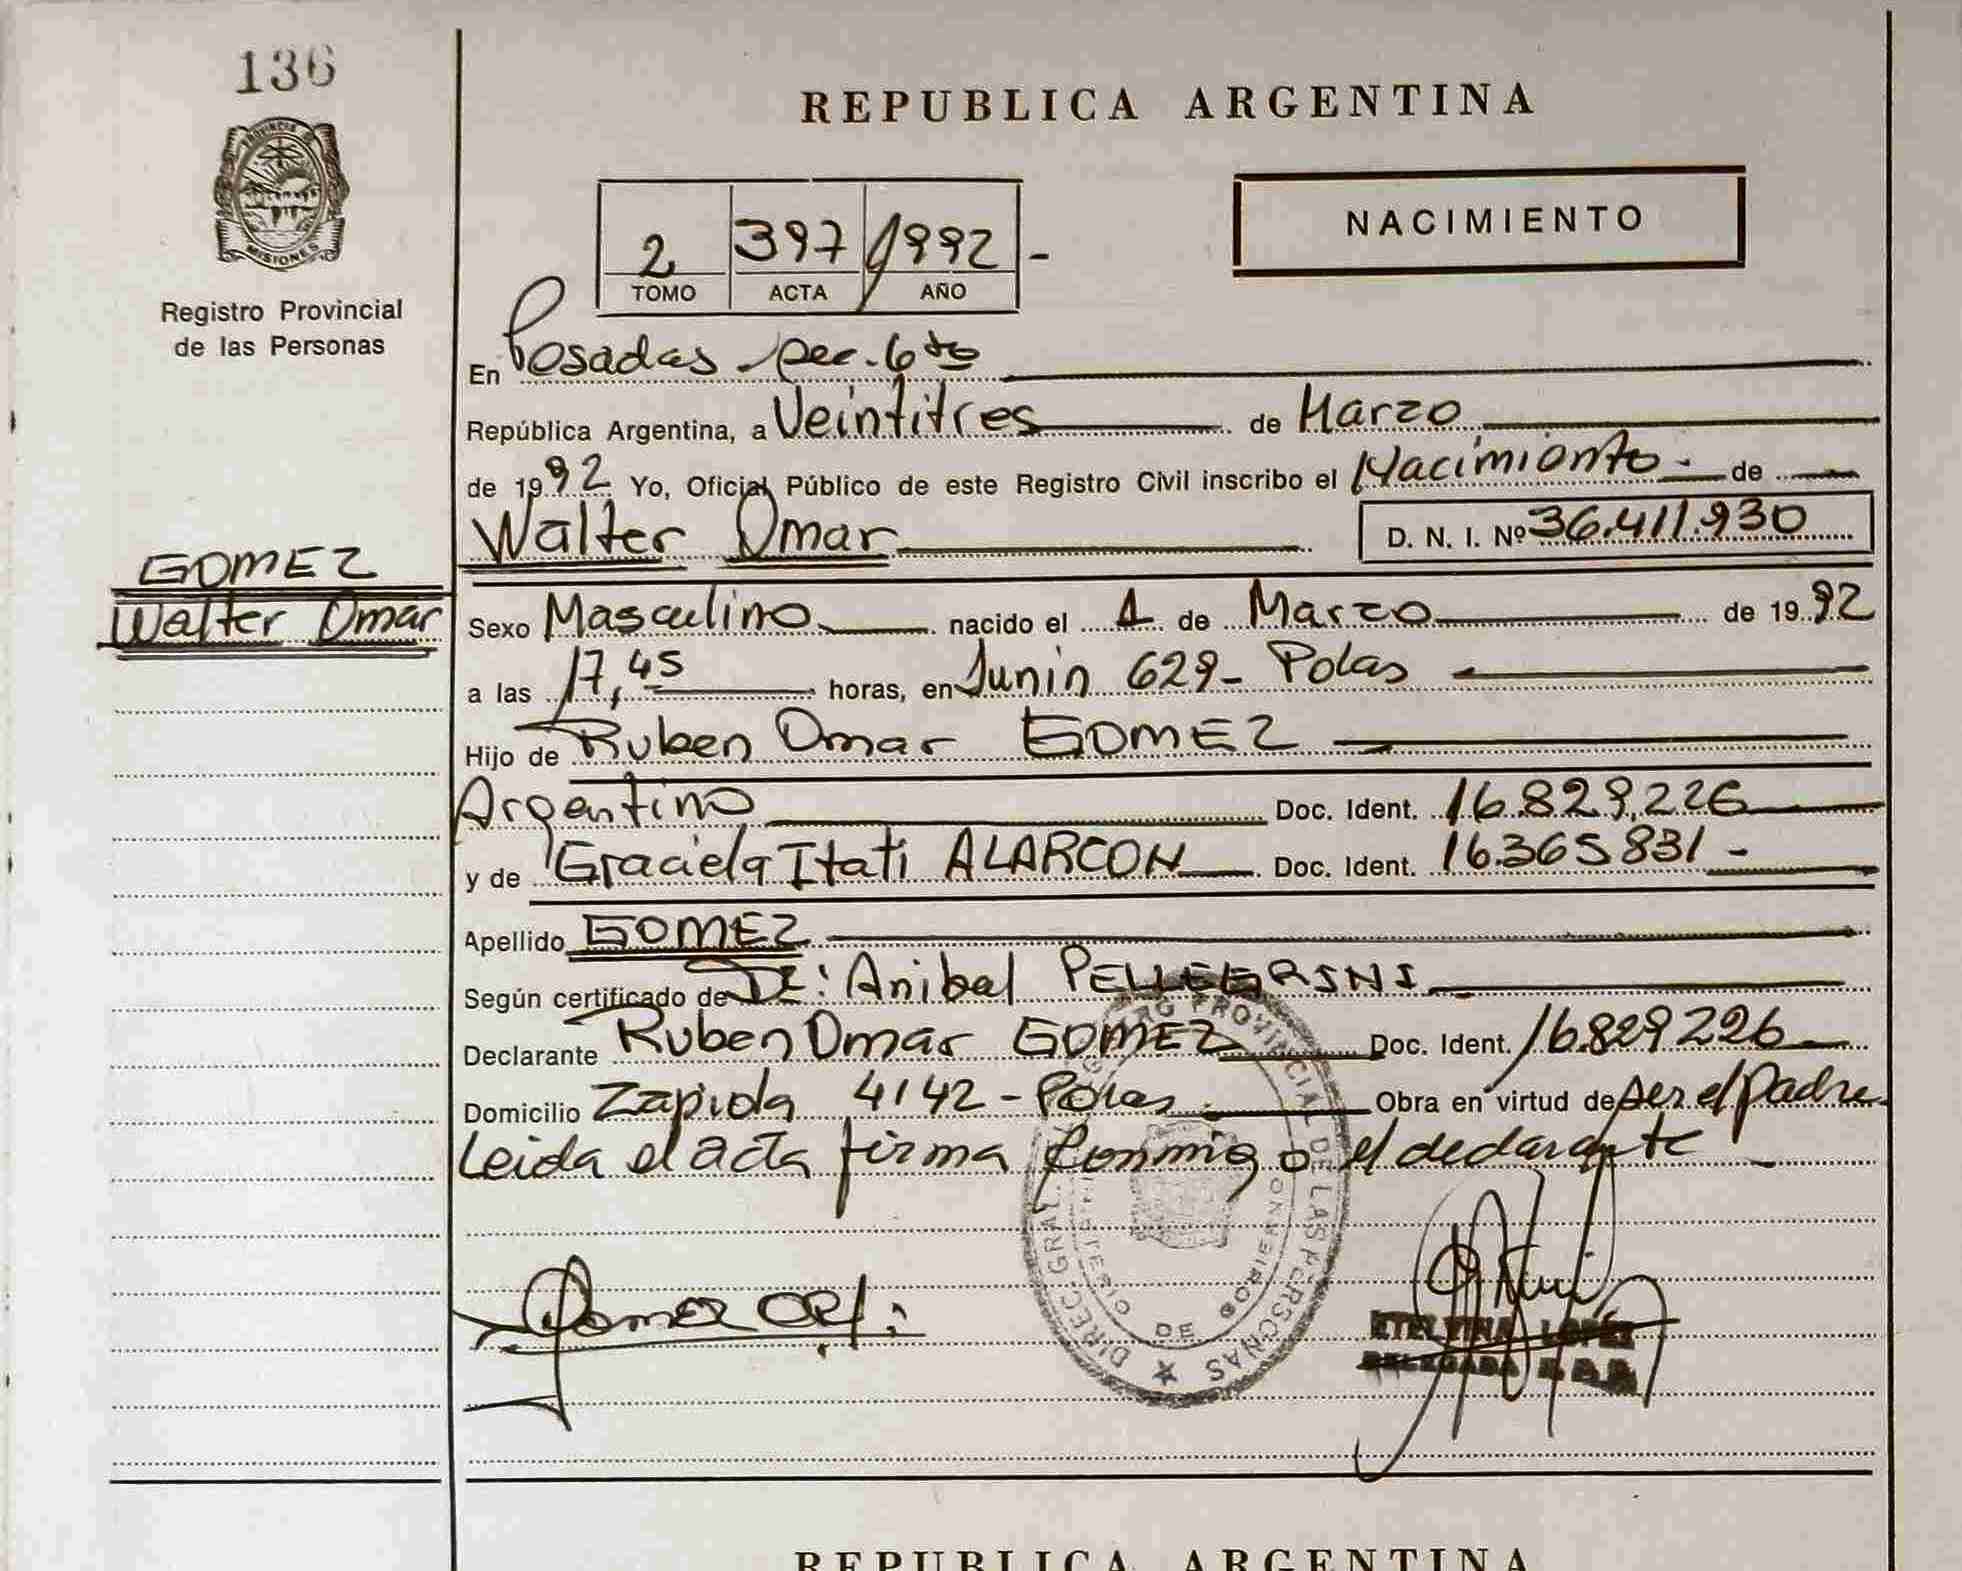 136
PROVINCIA DE
MISIONES
Registro Provincial
de las Personas
GOMEZ
Walter Omar
REPUBLICA ARGENTINA
NACIMIENTO
2 397 1992 -
TOMO ACTA AÑO
En Posadas Sec. 6to
República Argentina, a Veintitres de Marzo
de 1992 Yo, Oficial Público de este Registro Civil inscribo el Nacimiento - de
Walter Omar D. N. I. Nº 36.411.930
Sexo Masculino nacido el 1 de Marzo de 1992
a las 17,45 horas, en Junin 629 - Pdas
Hijo de Ruben Omar GOMEZ
Argentino Doc. Ident. 16.829.226
y de Graciela Itati ALARCON Doc. Ident. 16.365831 -
Apellido GOMEZ
Según certificado de Dr: Anibal PELLEGRINI
Declarante Ruben Omar GOMEZ Doc. Ident. 16.829226
Domicilio Zapiola 4142 - Pdas Obra en virtud de ser el padre
Leida el acta firma conmigo el declarante
DIREC. GRAL. REG PROVINCIAL DE LAS PERSONAS
DE
ETELVINA LOPEZ
DELEGADA
REPUBLICA ARGENTINA